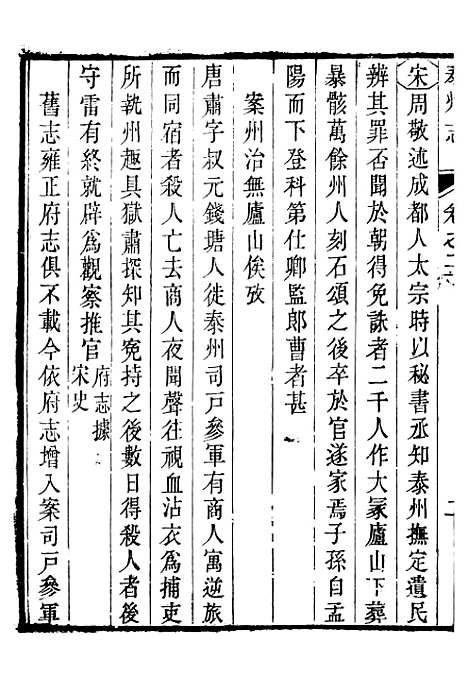 泰州志 卷之二
宋周敬述成都人太宗時以秘書丞知泰州撫定遺民
辨其罪否聞於朝得免誅者二千人作大冢廬山下葬
暴骸萬餘州人刻石頌之後卒於官遂家焉子孫自孟
陽而下登科第仕卿監郎曹者甚
案州治無廬山俟攷
唐肅字叔元錢塘人徙泰州司戸參軍有商人寓逆旅
而同宿者殺人亡去商人夜聞聲往視血沾衣爲捕吏
所執州趣具獄肅探知其寃持之後數日得殺人者後
守雷有終就辟爲觀察推官府志據宋史
舊志雍正府志俱不載今依府志增入案司戸參軍